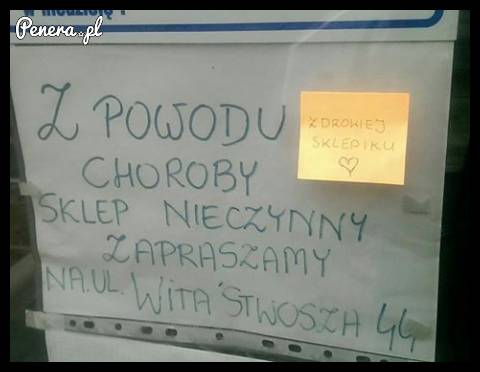 w niedzielę i
Penera.pl
Z POWODU
CHOROBY
SKLEP NIECZYNNY
ZAPRASZAMY
NA.UL. WITA STWOSZA 44
ZDROWIEJ
SKLEPIKU
♡